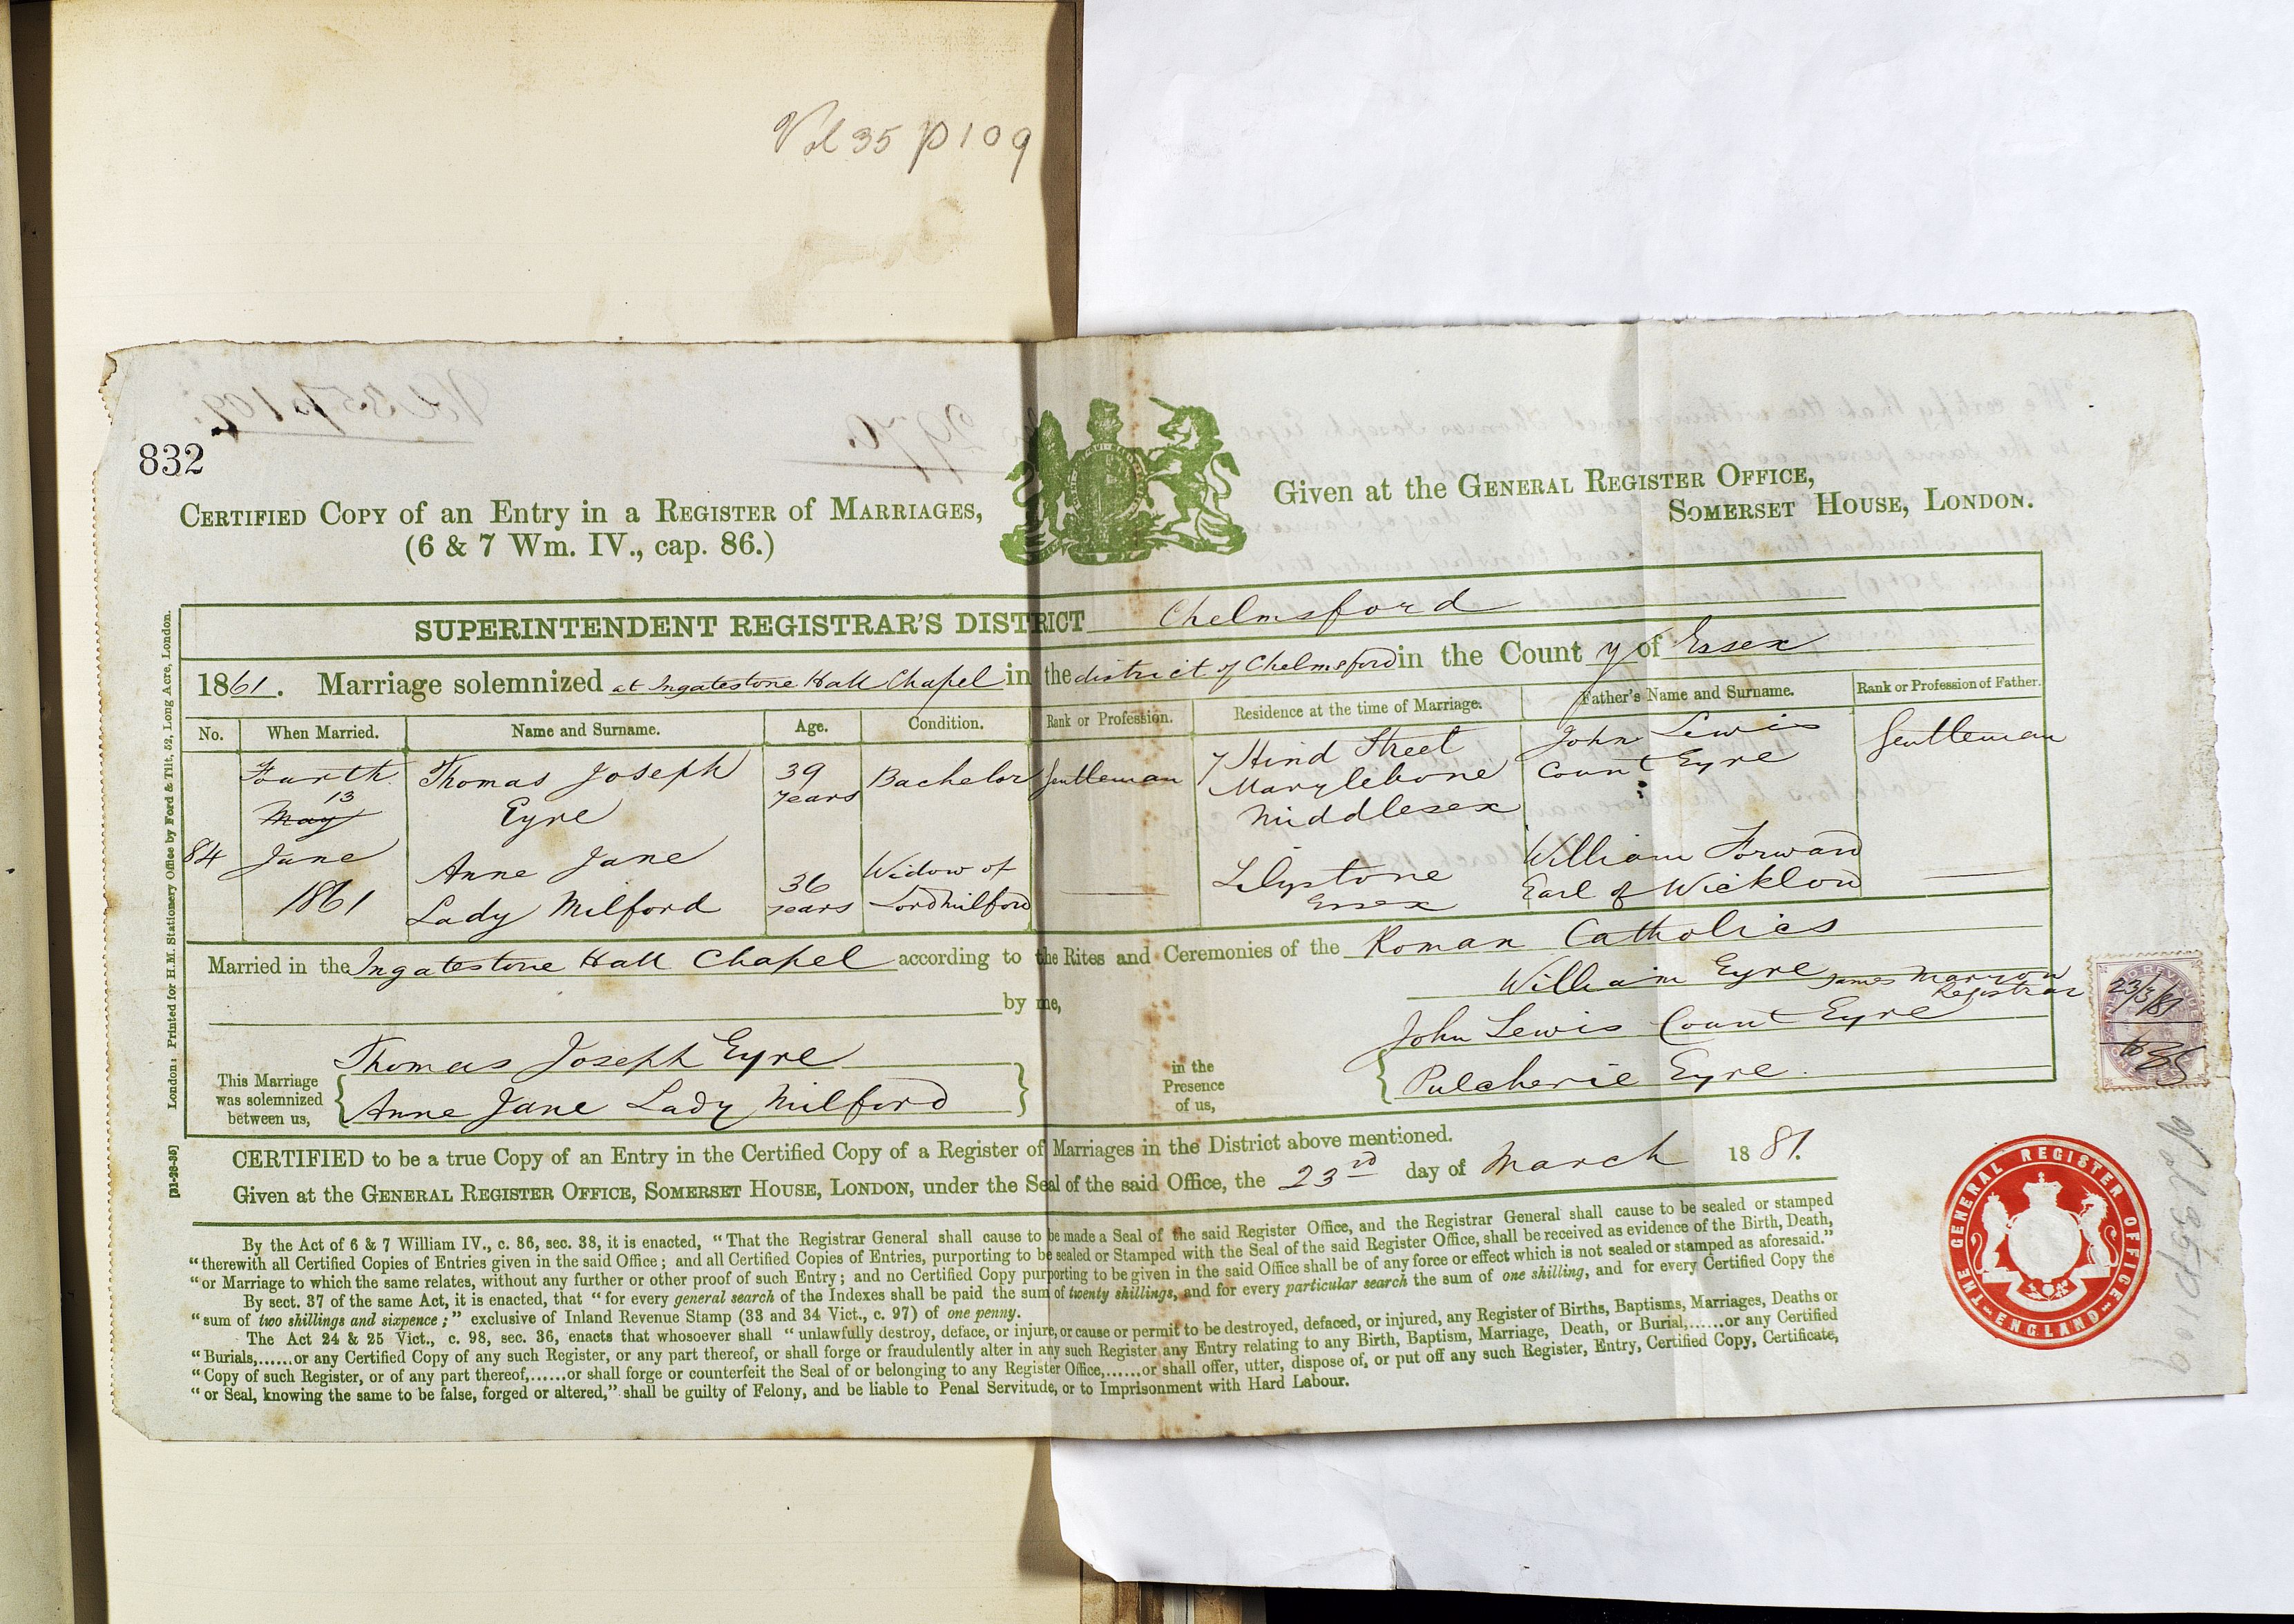 Vol 35 p 109
832
CERTIFIED COPY of an Entry in a REGISTER of MARRIAGES,
(6 & 7 Wm. IV., cap. 86.)
Given at the GENERAL REGISTER OFFICE,
SOMERSET HOUSE, LONDON.
SUPERINTENDENT REGISTRAR'S DISTRICT Chelmsford
1861. Marriage solemnized at Ingatestone Hall Chapel in the district of Chelmsford in the County of Essex
No. When Married. Name and Surname. Age. Condition. Rank or Profession. Residence at the time of Marriage. Father's Name and Surname. Rank or Profession of Father.
84
Fourth
13
May
June
1861
Thomas Joseph
Eyre
39
years
Bachelor
Gentleman
7 Hind Street
Marylebone
Middlesex
John Lewis
Count Eyre
Gentleman
Anne Jane
Lady Milford
36
years
Widow of
Lord Milford
Lilystone
Essex
William Forward
Earl of Wicklow
Married in the Ingatestone Hall Chapel according to the Rites and Ceremonies of the Roman Catholics
by me,
William Eyre James Marryon
Registrar
This Marriage
was solemnized
between us,
Thomas Joseph Eyre
Anne Jane Lady Milford
in the
Presence
of us,
John Lewis Count Eyre
Pulcherie Eyre.
23/3/81
CERTIFIED to be a true Copy of an Entry in the Certified Copy of a Register of Marriages in the District above mentioned.
Given at the GENERAL REGISTER OFFICE, SOMERSET HOUSE, LONDON, under the Seal of the said Office, the 23rd day of March 1881.
By the Act of 6 & 7 William IV., c. 86, sec. 38, it is enacted, "That the Registrar General shall cause to be made a Seal of the said Register Office, and the Registrar General shall cause to be sealed or stamped
"therewith all Certified Copies of Entries given in the said Office; and all Certified Copies of Entries, purporting to be sealed or Stamped with the Seal of the said Register Office, shall be received as evidence of the Birth, Death,
"or Marriage to which the same relates, without any further or other proof of such Entry; and no Certified Copy purporting to be given in the said Office shall be of any force or effect which is not sealed or stamped as aforesaid."
By sect. 37 of the same Act, it is enacted, that "for every general search of the Indexes shall be paid the sum of twenty shillings, and for every particular search the sum of one shilling, and for every Certified Copy the
"sum of two shillings and sixpence;" exclusive of Inland Revenue Stamp (33 and 34 Vict., c. 97) of one penny.
The Act 24 & 25 Vict., c. 98, sec. 36, enacts that whosoever shall "unlawfully destroy, deface, or injure, or cause or permit to be destroyed, defaced, or injured, any Register of Births, Baptisms, Marriages, Deaths or
"Burials,......or any Certified Copy of any such Register, or any part thereof, or shall forge or fraudulently alter in any such Register any Entry relating to any Birth, Baptism, Marriage, Death, or Burial,......or any Certified
"Copy of such Register, or of any part thereof,......or shall forge or counterfeit the Seal of or belonging to any Register Office,......or shall offer, utter, dispose of, or put off any such Register, Entry, Certified Copy, Certificate,
"or Seal, knowing the same to be false, forged or altered," shall be guilty of Felony, and be liable to Penal Servitude, or to Imprisonment with Hard Labour.
THE GENERAL REGISTER OFFICE
ENGLAND
Vol 35 p 109
London: Printed for H.M. Stationery Office by Ford & Tilt, 52, Long Acre, London.